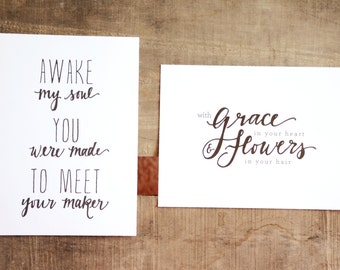 AWAKE
my soul
YOU
were made
TO MEET
your maker
with Grace
in your heart
& Flowers
in your hair